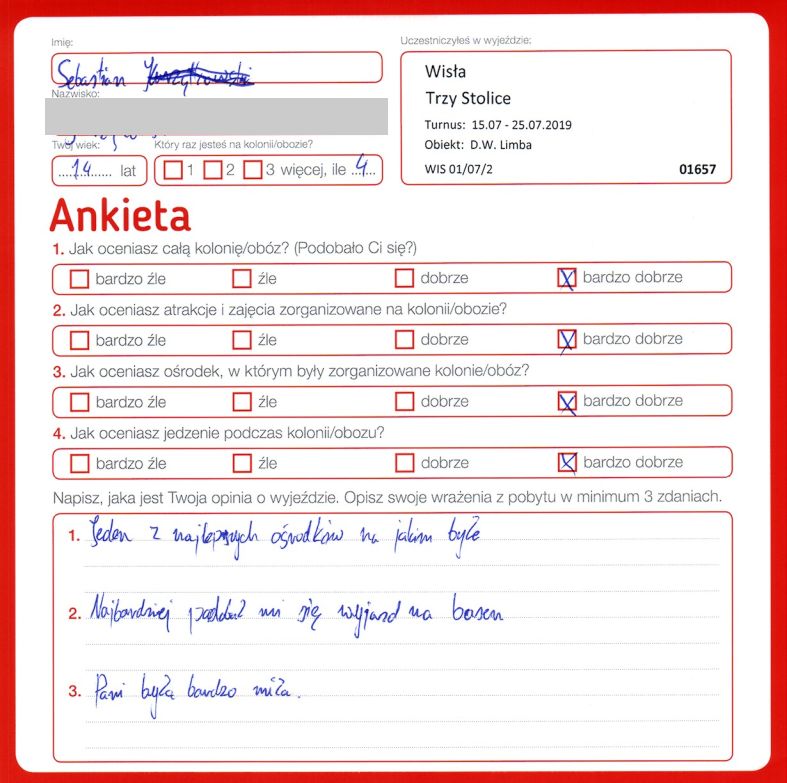 Imię:
Sebastian
Nazwisko:
Twój wiek:
14 lat
Który raz jesteś na kolonii/obozie?
1 2 3 więcej, ile 4
Uczestniczyłeś w wyjeździe:
Wisła
Trzy Stolice
Turnus: 15.07 - 25.07.2019
Obiekt: D.W. Limba
WIS 01/07/2 01657
Ankieta
1. Jak oceniasz całą kolonię/obóz? (Podobało Ci się?)
bardzo źle źle dobrze X bardzo dobrze
2. Jak oceniasz atrakcje i zajęcia zorganizowane na kolonii/obozie?
bardzo źle źle dobrze X bardzo dobrze
3. Jak oceniasz ośrodek, w którym były zorganizowane kolonie/obóz?
bardzo źle źle dobrze X bardzo dobrze
4. Jak oceniasz jedzenie podczas kolonii/obozu?
bardzo źle źle dobrze X bardzo dobrze
Napisz, jaka jest Twoja opinia o wyjeździe. Opisz swoje wrażenia z pobytu w minimum 3 zdaniach.
1. Jeden z najlepszych ośrodków na jakim byłe
2. Najbardziej mi się wyjazd na basen
3. Pani była bardzo miła.